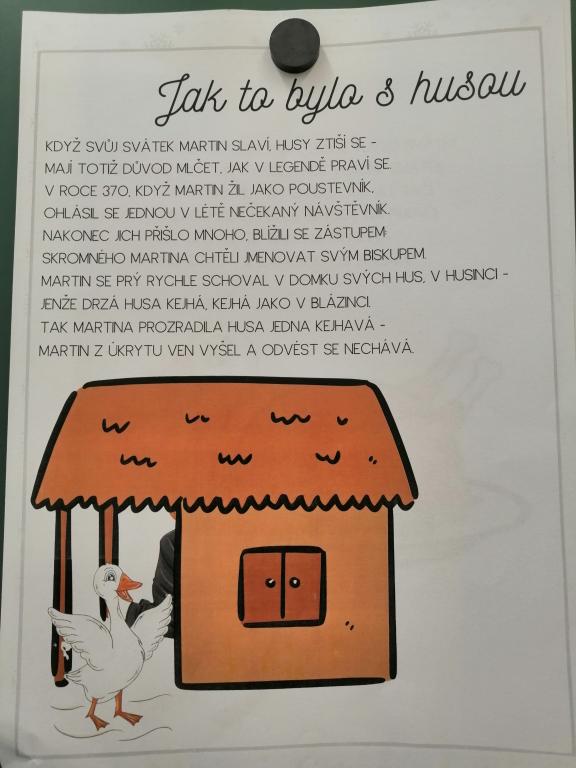 Jak to bylo s husou
KDYŽ SVŮJ SVÁTEK MARTIN SLAVÍ, HUSY ZTIŠÍ SE -
MAJÍ TOTIŽ DŮVOD MLČET, JAK V LEGENDĚ PRAVÍ SE.
V ROCE 370, KDYŽ MARTIN ŽIL JAKO POUSTEVNÍK,
OHLÁSIL SE JEDNOU V LÉTĚ NEČEKANÝ NÁVŠTĚVNÍK.
NAKONEC JICH PŘIŠLO MNOHO, BLÍŽILI SE ZÁSTUPEM:
SKROMNÉHO MARTINA CHTĚLI JMENOVAT SVÝM BISKUPEM.
MARTIN SE PRÝ RYCHLE SCHOVAL V DOMKU SVÝCH HUS, V HUSINCI -
JENŽE DRZÁ HUSA KEJHÁ, KEJHÁ JAKO V BLÁZINCI.
TAK MARTINA PROZRADILA HUSA JEDNA KEJHAVÁ -
MARTIN Z ÚKRYTU VEN VYŠEL A ODVÉST SE NECHÁVÁ.